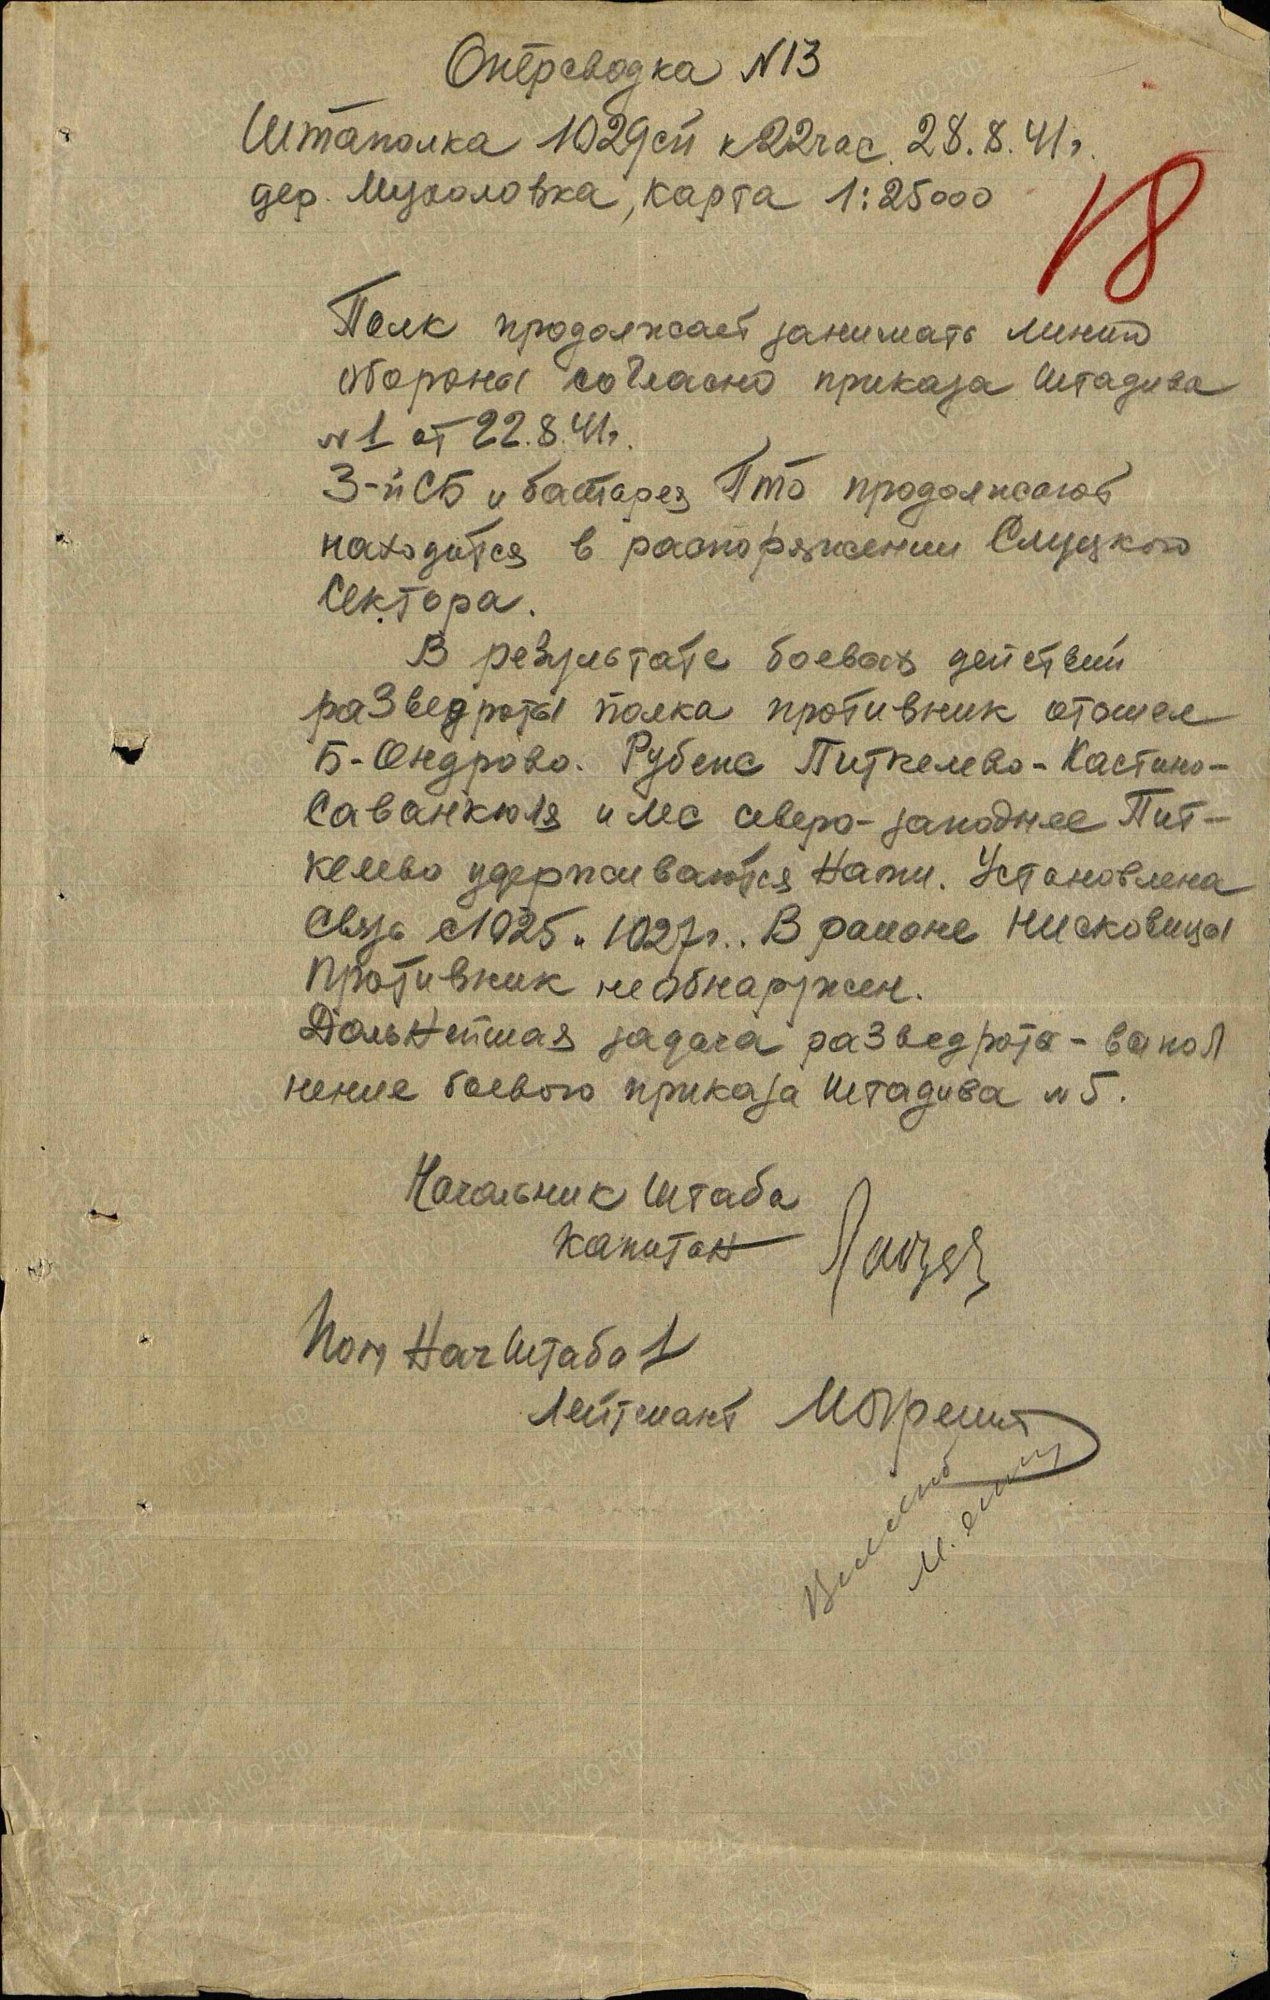 Оперсводка N13
Штаполка 1029сп к 22час. 28.8.41г.
дер. Музоловка, карта 1:25000
18
Полк продолжает занимать линию
обороны согласно приказа Штадива
N1 от 22.8.41г.
3-й СБ и батарея ПТО продолжают
находится в распоряжении Слуцкого
Сектора.
В результате боевых действий
разведроты полка противник отошел
Б-Ондрово. Рубеж Питкелево-Кастино-
Саванкюля и лес северо-западнее Пит-
келево удерживаются Нами. Установлена
Связь с 1025 и 1027г.. В районе Нисковицы
Противник не обнаружен.
Дальнейшая задача разведроты - выпол
нение боевого приказа Штадива N5.
Начальник Штаба
Капитан
Пом Нач Штаба 1
Лейтенант